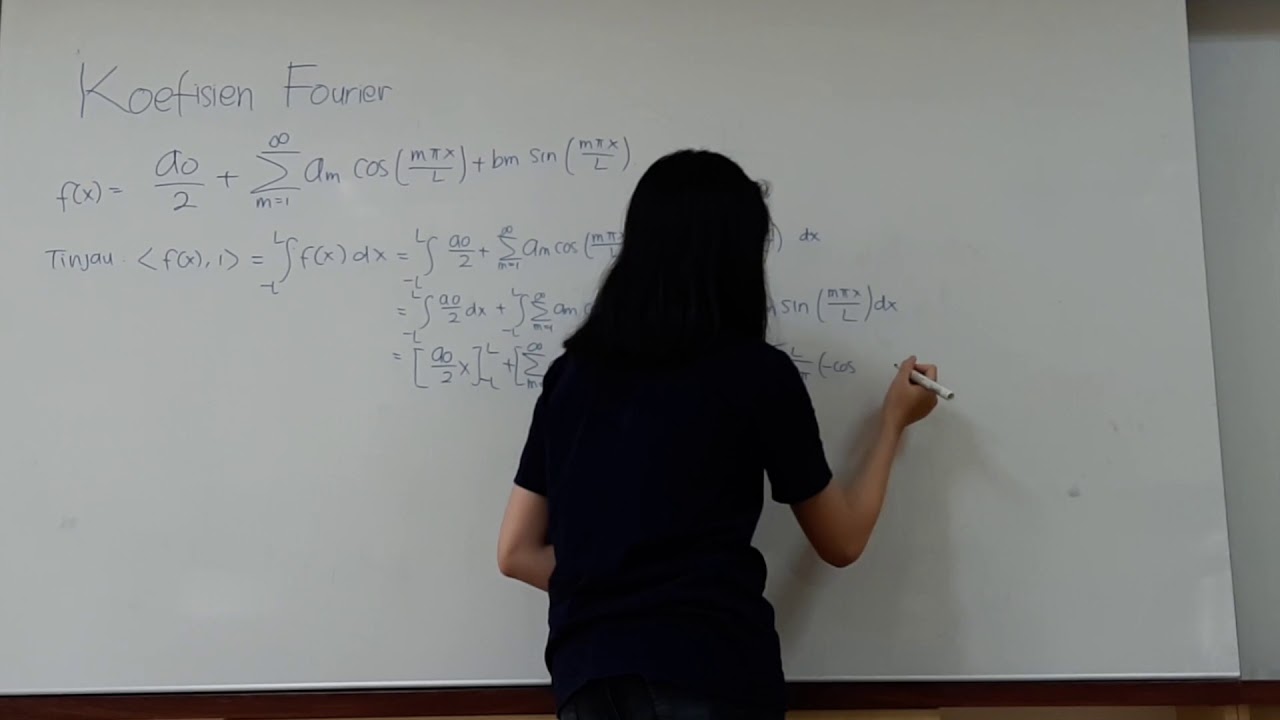 Koefisien Fourier
f(x) = a0/2 + ∑_{m=1}^{∞} am cos(mπx/L) + bm sin(mπx/L)
Tinjau: <f(x), 1> = ∫_{-L}^{L} f(x) dx = ∫_{-L}^{L} a0/2 + ∑_{m=1}^{∞} am cos(mπ dx
= ∫_{-L}^{L} a0/2 dx + ∫_{-L}^{L} ∑_{m=1}^{∞} am sin(mπx/L) dx
= [a0/2 x]_{-L}^{L} + [∑ (-cos